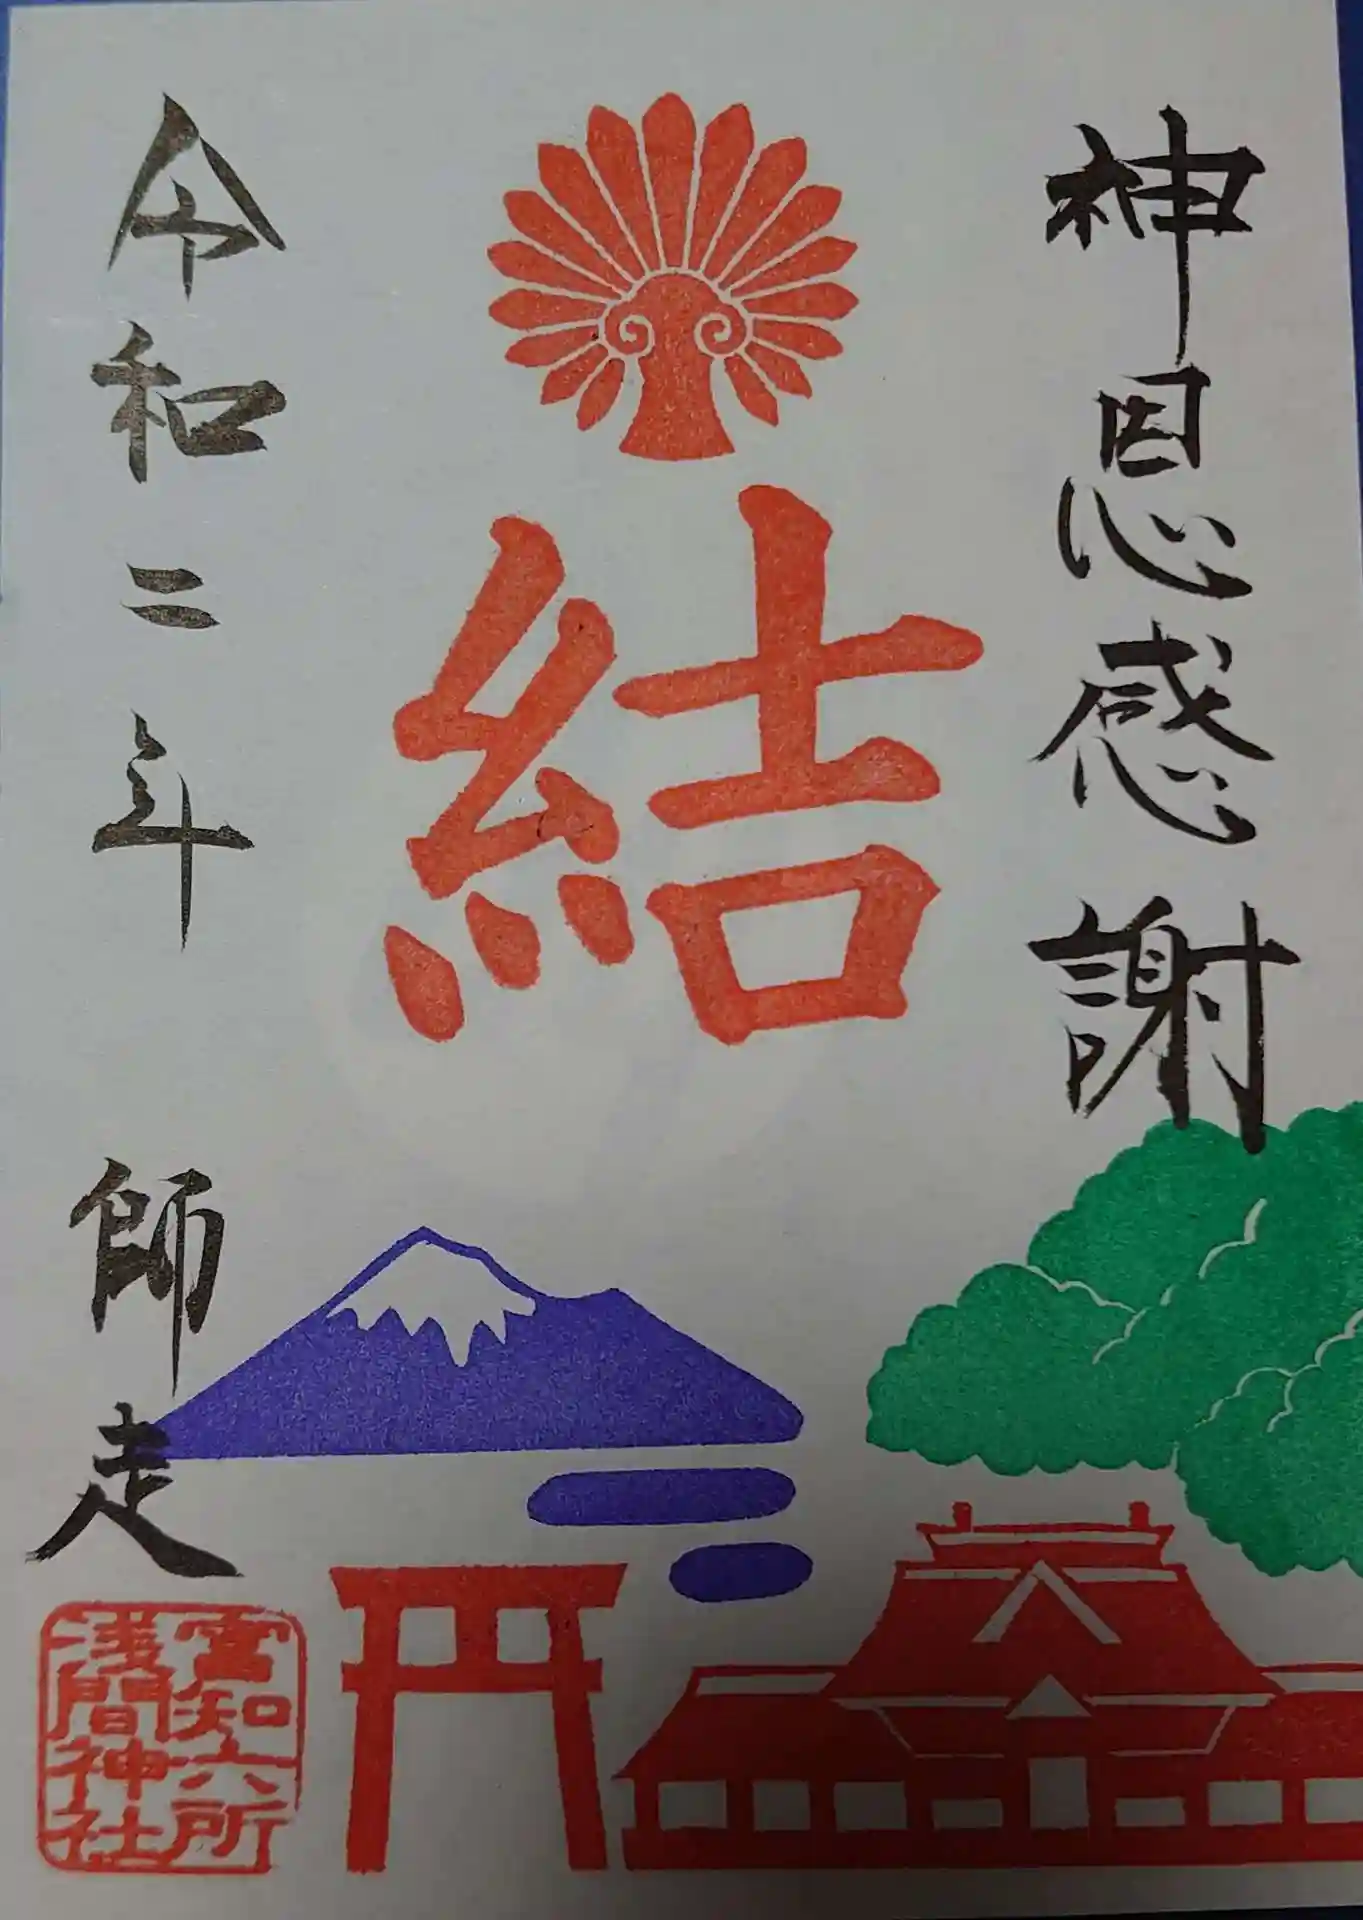 神恩感謝
結
令和二年 師走
富知六所
浅間神社